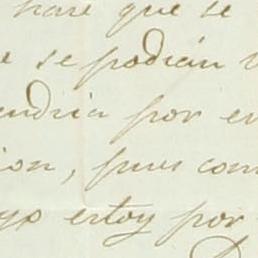 hare que se
e se podian
endria por en
ion, pues com
yo estoy por